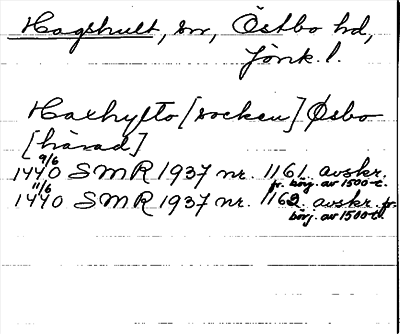 Hagshult, sn, Östbo hd,
Jönk. l.
Haxhylto [socken] Øsbo
[härad]
9/6
1440 SMR 1937 nr. 1161. avskr.
fr. börj. av 1500-t.
11/6
1440 SMR 1937 nr. 1162. avskr. fr.
börj. av 1500-t.